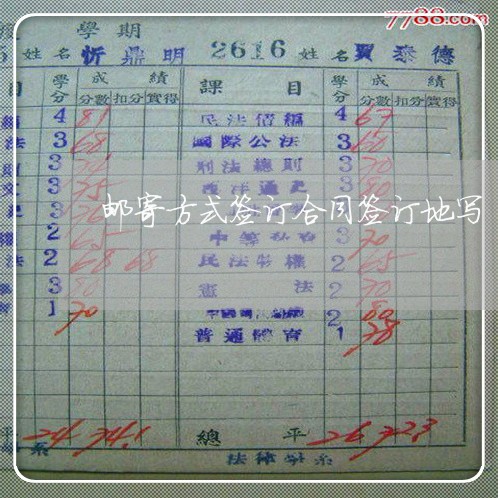 7788.com
學期
姓名 忻鼎明 2616 姓名 賈泰德
目 學分 成績 課目 學分 成績
分數 扣分 實得 分數 扣分 實得
4 81 民法債編 4 67
法 3 68 國際公法 3 60
3 刑法總則 3 70
3 75 西洋通史 3 80
郵寄方式签订合同签订地写
2 65 3 70
法 2 68 68 民法物權 2 65
3 80 憲法 2 70
1 70 2 80
普通體育 1 78
平 24 74.1 總平 26 72.3
系 法律學系